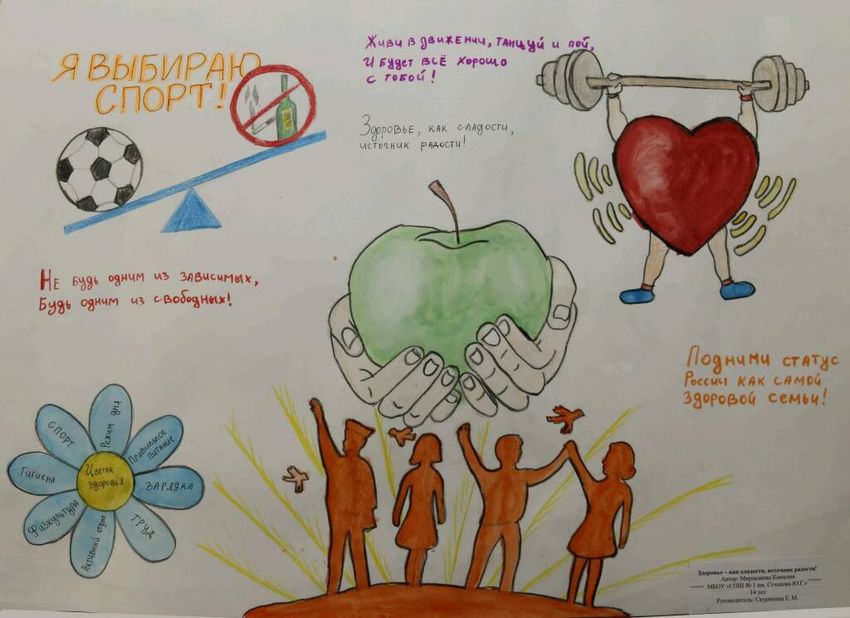 Я ВЫБИРАЮ
СПОРТ!
Живи в движении, танцуй и пой,
И будет всё хорошо
с тобой!
Здоровье, как сладости,
источник радости!
Не будь одним из зависимых,
Будь одним из свободных!
Подними статус
России как самой
здоровой семьи!
Цветок
здоровья
Режим дня
Правильное
питание
ЗАРЯДКА
ТРУД
Активный отдых
Физкультура
Гигиена
СПОРТ
Здоровье – как сладости, источник радости!
Автор: Мирзалиева Камилла
МБОУ «СОШ № 1 им. Созонова Ю.Г.»
14 лет
Руководитель: Скуратина Е. М.